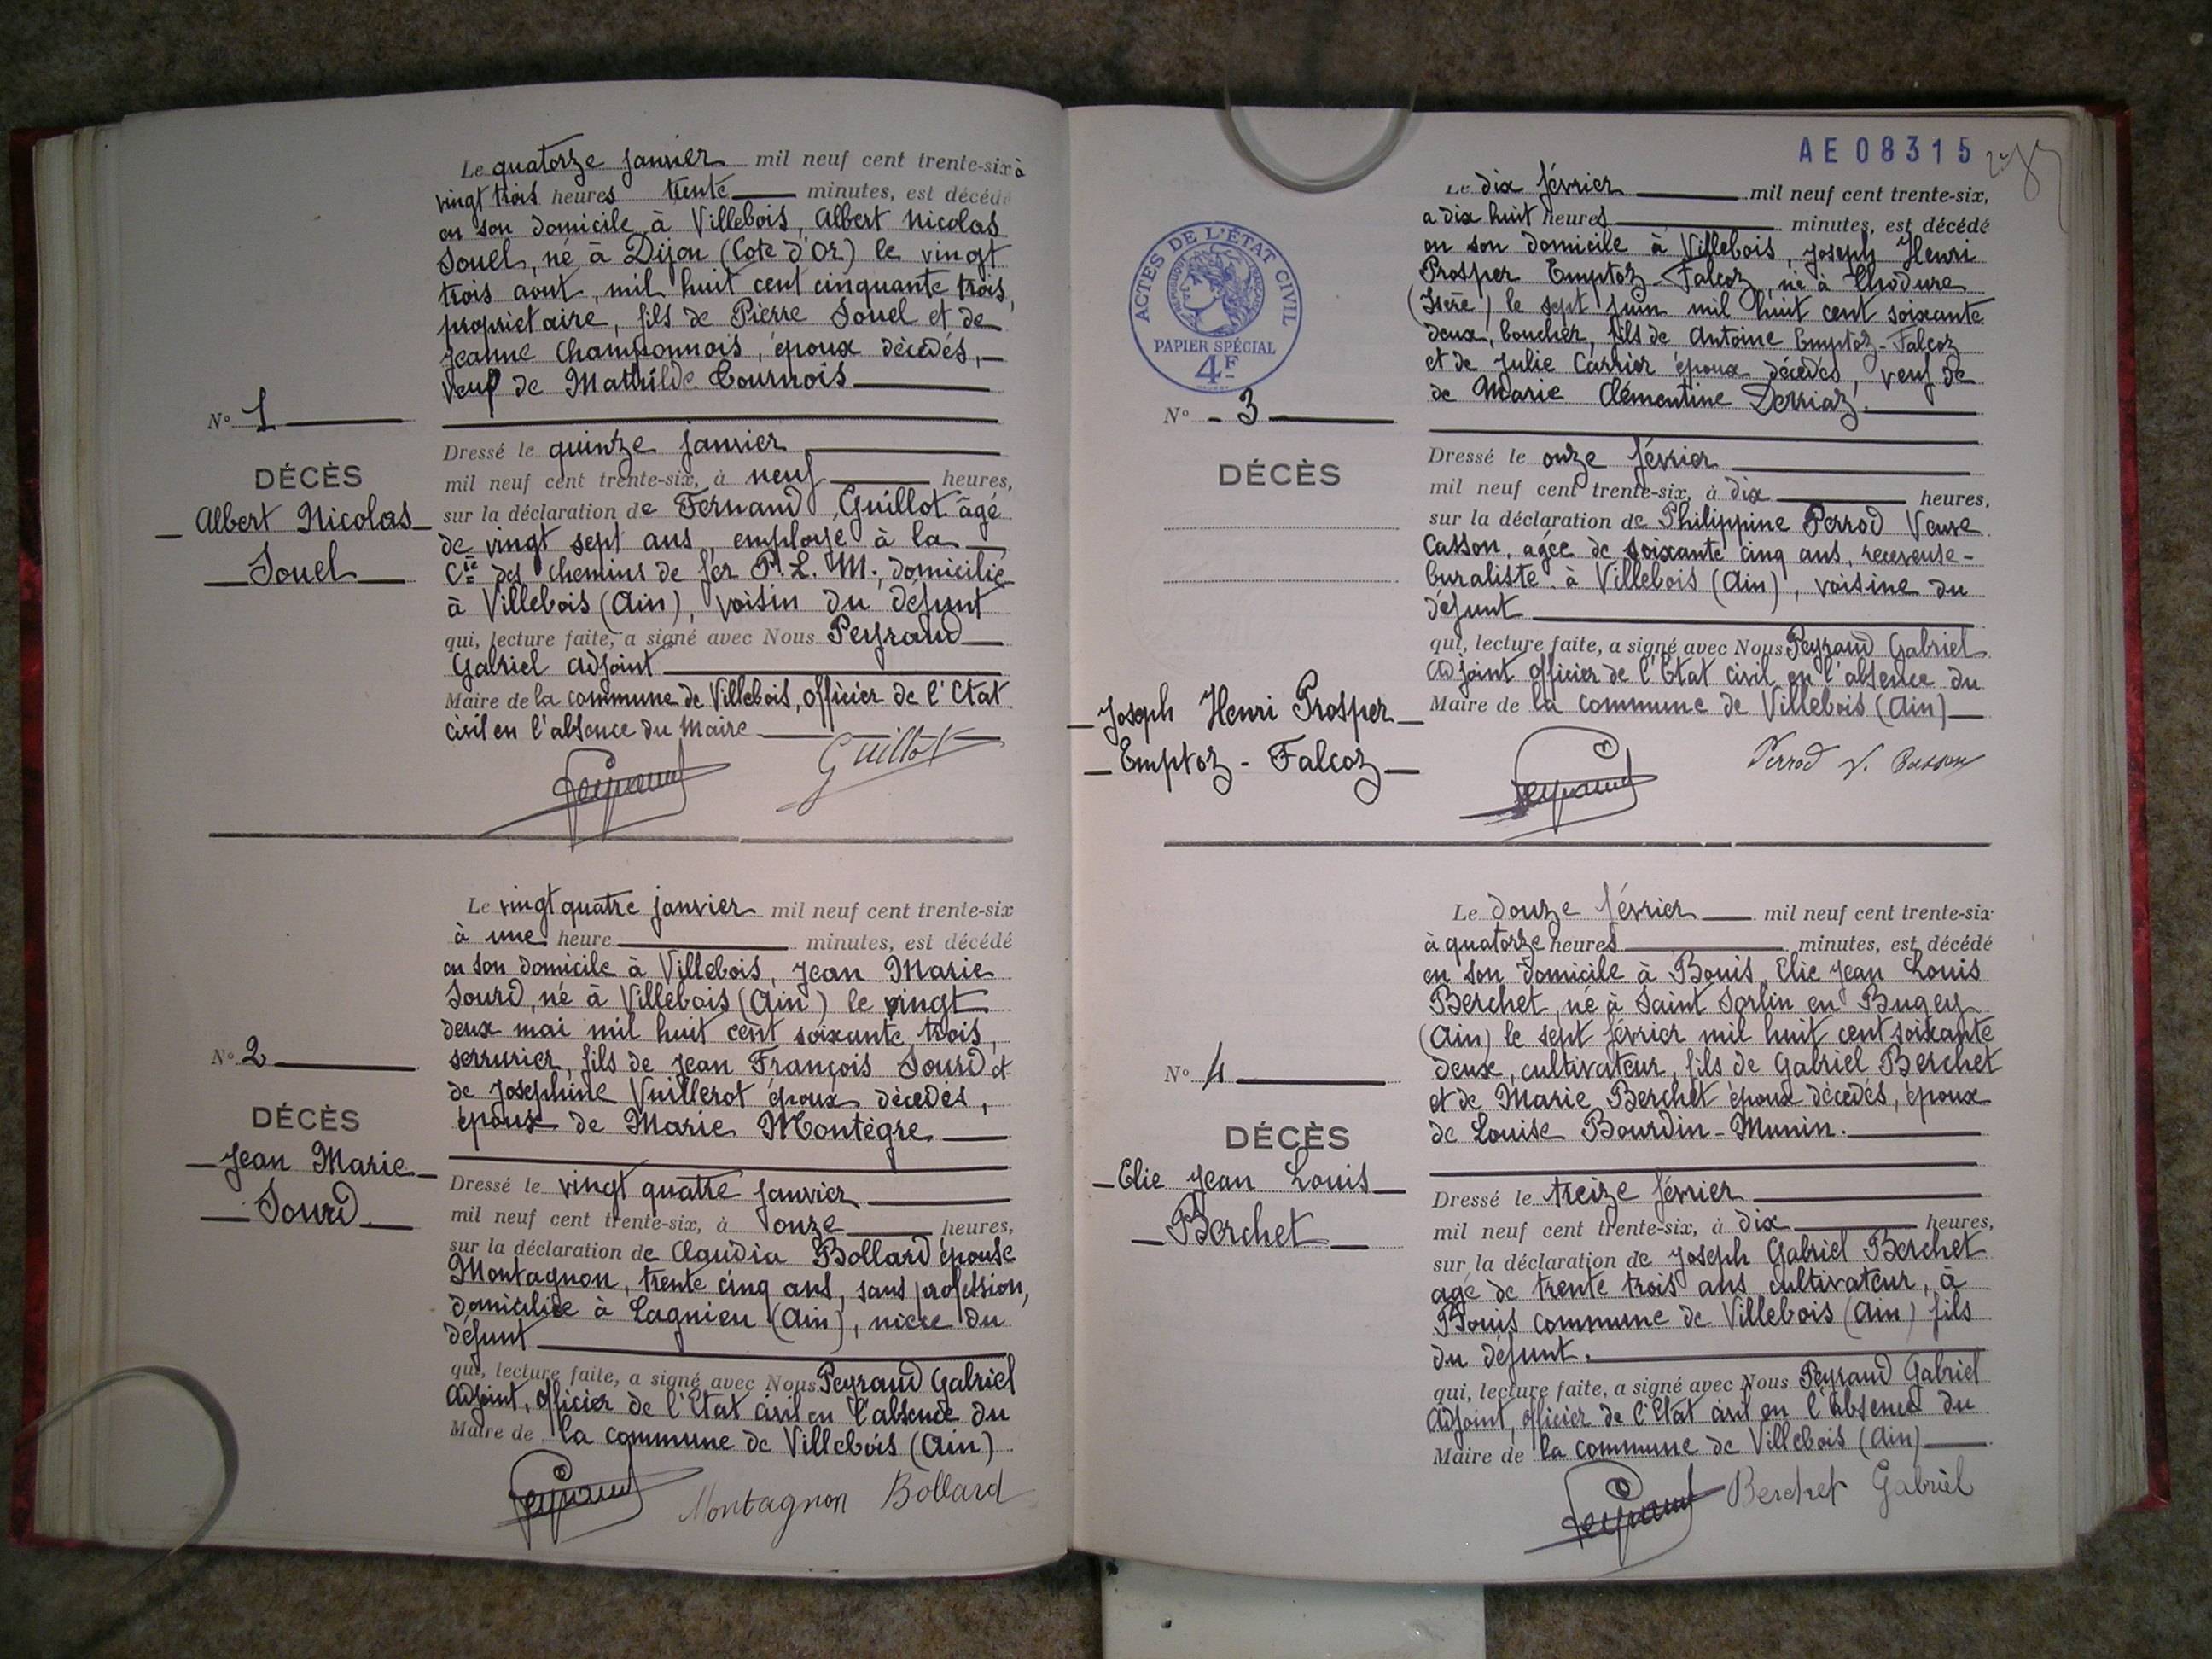 Le quatorze janvier mil neuf cent trente-six à
vingt trois heures trente minutes, est décédé
en son domicile à Villebois, Albert Nicolas
Souel, né à Dijon (Cote d'Or) le vingt
trois aout, mil huit cent cinquante trois,
propriétaire, fils de Pierre Souel et de
Jeanne Championnois, époux décédés,
veuf de Mathilde Cournois
N° 1
DÉCÈS
Albert Nicolas
Souel
Dressé le quinze janvier
mil neuf cent trente-six, à neuf heures,
sur la déclaration de Fernand Guillot âgé
de vingt sept ans, employé à la
Cie des chemins de fer P.L.M., domicilié
à Villebois (Ain), voisin du défunt
qui, lecture faite, a signé avec Nous Peyraud
Gabriel adjoint
Maire de la commune de Villebois, officier de l'Etat
civil en l'absence du Maire
Peyraud Guillot
Le vingt quatre janvier mil neuf cent trente-six
à une heure minutes, est décédé
en son domicile à Villebois, Jean Marie
Sourd, né à Villebois (Ain) le vingt
deux mai mil huit cent soixante trois,
serrurier, fils de Jean François Sourd et
de Joséphine Vuillerot époux décédés,
époux de Marie Montégre
N° 2
DÉCÈS
Jean Marie
Sourd
Dressé le vingt quatre janvier
mil neuf cent trente-six, à onze heures,
sur la déclaration de Claudia Bollard épouse
Montagnon, trente cinq ans, sans profession,
domiciliée à Lagnieu (Ain), niece du
défunt
qui, lecture faite, a signé avec Nous Peyraud Gabriel
Adjoint, officier de l'Etat civil en l'absence du
Maire de la commune de Villebois (Ain)
Peyraud Montagnon Bollard
AE 08315
ACTES DE L'ÉTAT CIVIL
PAPIER SPÉCIAL
4F
Le dix février mil neuf cent trente-six,
a dix huit heures minutes, est décédé
en son domicile à Villebois, Joseph Henri
Prosper Emptoz-Falcoz, né à Thodure
(Isère) le sept juin mil huit cent soixante
deux, boucher, fils de Antoine Emptoz-Falcoz
et de Julie Carrier époux décédés, veuf de
de Marie Clémentine Derriaz.
N° 3
DÉCÈS
Joseph Henri Prosper
Emptoz - Falcoz
Dressé le onze février
mil neuf cent trente-six, à dix heures,
sur la déclaration de Philippine Perrod Veuve
Casson, agée de soixante cinq ans, receveuse-
buraliste à Villebois (Ain), voisine du
défunt
qui, lecture faite, a signé avec Nous Peyraud Gabriel
Adjoint officier de l'Etat civil en l'absence du
Maire de la commune de Villebois (Ain)
Peyraud Perrod V. Casson
Le douze février mil neuf cent trente-six
à quatorze heures minutes, est décédé
en son domicile à Bouis, Elie Jean Louis
Berchet, né à Saint Sorlin en Bugey
(Ain) le sept février mil huit cent soixante
deux, cultivateur, fils de Gabriel Berchet
et de Marie Berchet époux décédés, époux
de Louise Bourdin-Munin.
N° 4
DÉCÈS
Elie Jean Louis
Berchet
Dressé le treize février
mil neuf cent trente-six, à dix heures,
sur la déclaration de Joseph Gabriel Berchet
agé de trente trois ans cultivateur, à
Bouis commune de Villebois (Ain) fils
du défunt.
qui, lecture faite, a signé avec Nous Peyraud Gabriel
Adjoint, officier de l'Etat civil en l'absence du
Maire de la commune de Villebois (Ain)
Peyraud Berchet Gabriel